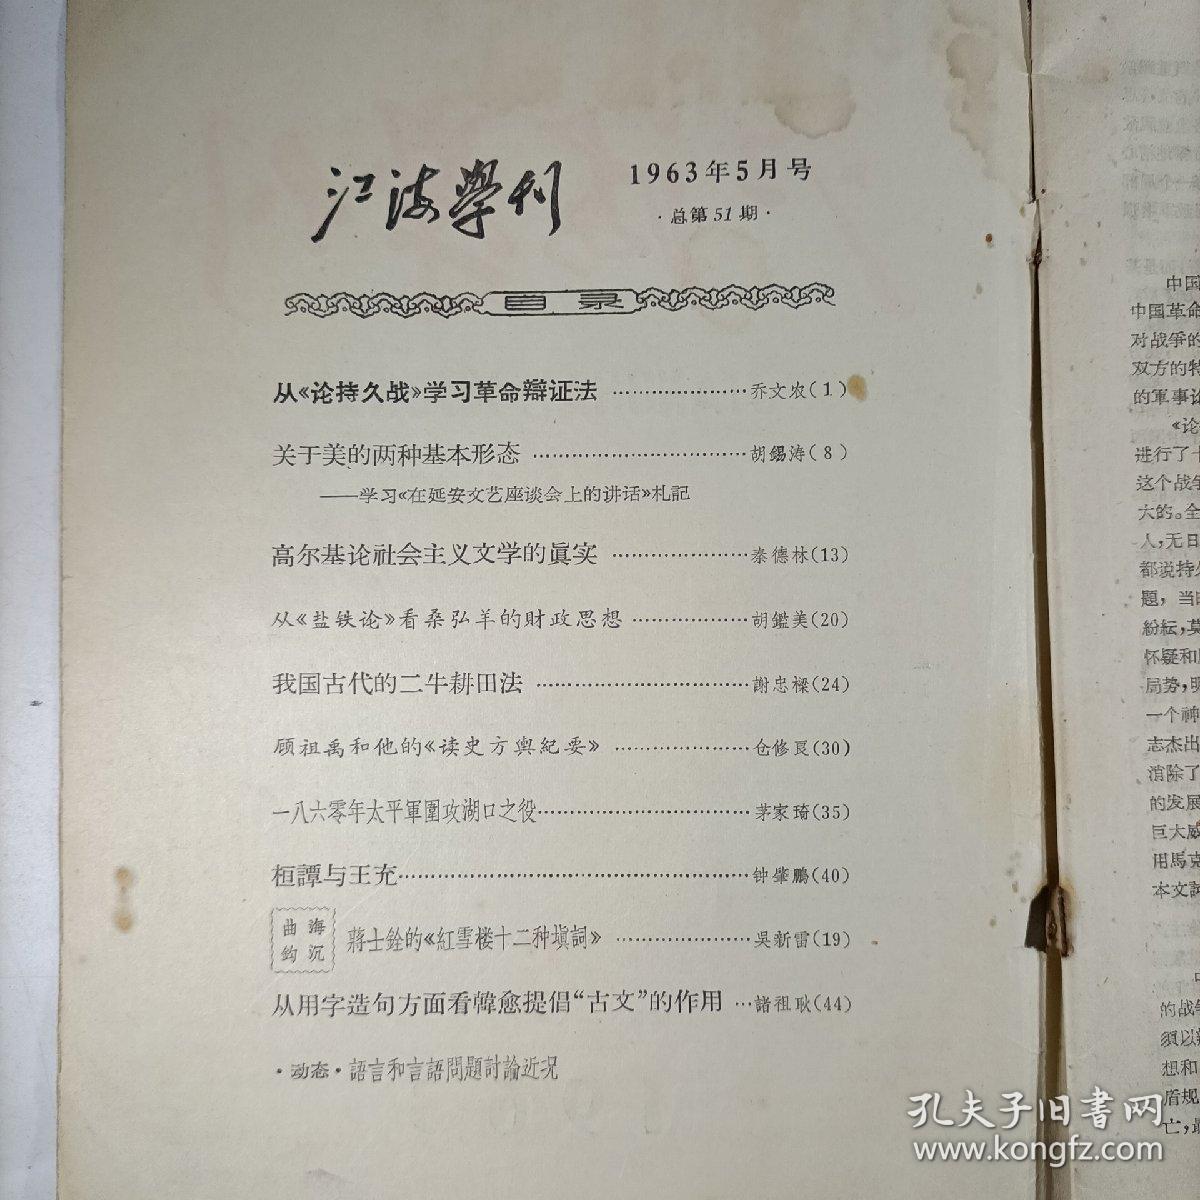 江海學刊
1963年5月号
·总第51期·
目录
从《论持久战》学习革命辯证法 ………………乔文农(1)
关于美的两种基本形态 …………………………胡錫涛(8)
——学习《在延安文艺座谈会上的讲话》札記
高尔基论社会主义文学的眞实 ………………秦德林(13)
从《盐铁论》看桑弘羊的財政思想 ………………胡鑑美(20)
我国古代的二牛耕田法 …………………………謝忠樑(24)
顾祖禹和他的《读史方輿紀要》 ………………仓修良(30)
一八六零年太平軍圍攻湖口之役…………………茅家琦(35)
桓譚与王充…………………………………………钟肇鵬(40)
曲海
鈎沉
蔣士銓的《紅雪楼十二种塡詞》 ………………吳新雷(19)
从用字造句方面看韓愈提倡“古文”的作用 …諸祖耿(44)
·动态·語言和言語問題討論近况
中国
中国革命
对战爭的
双方的特
的軍事论
《论
进行了十
这个战爭
大的。全
人,无日
都说持久
題，当时
紛紜,莫
怀疑和
局势,明
一个神
志杰出
消除了
的发展
巨大威
用馬克
本文試
的战爭
須以辯
想和
盾规
亡,最
孔夫子旧書网
www.kongfz.com